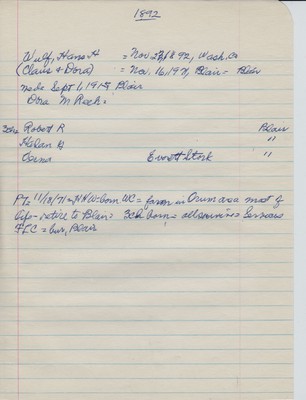 1892
Wulf, Hans H = Nov 27, 1892, Wash, Co
(Claus & Dora) = Nov. 16, 1971, Blair - Blair
md. Sept 1, 1915 Blair
Dora M Rech.
3ch= Robert R Blair
Helen "
Everett Stork "
PT= 11/18/71 = HHW-born WC = farm in Orum area most of
life - retire to Blair = 3ch born = all survive = Services
FLC = bur, Blair